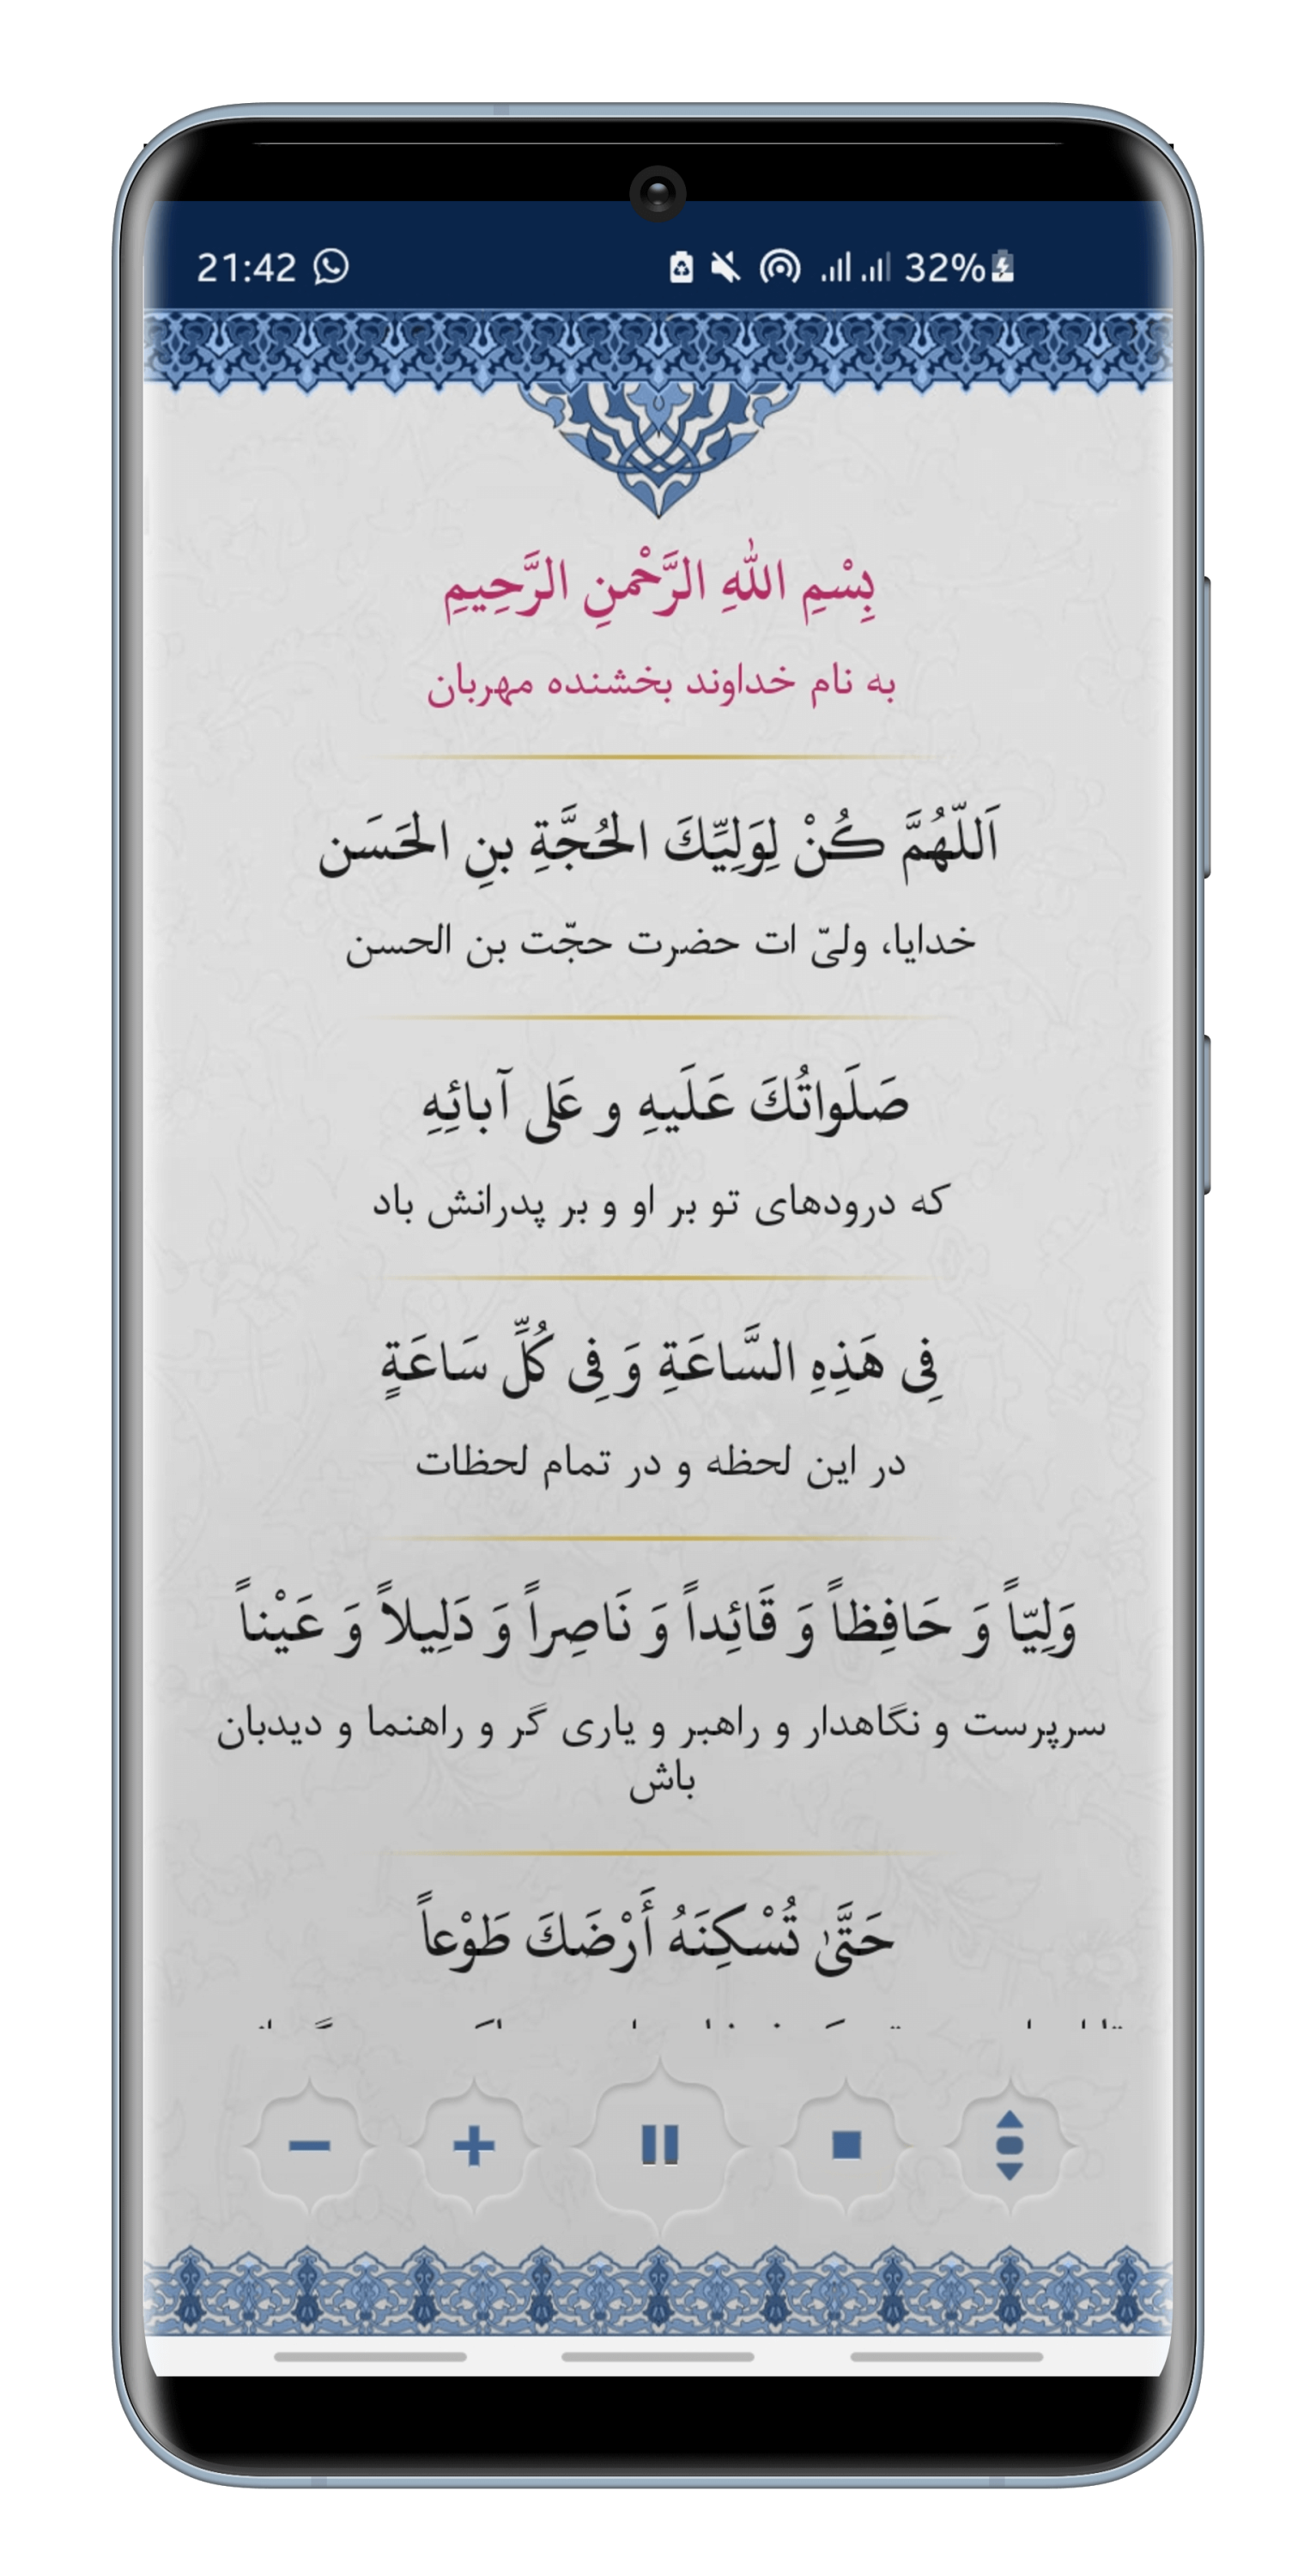 21:42 32%
بِسْمِ اللهِ الرَّحْمنِ الرَّحِيمِ
به نام خداوند بخشنده مهربان
اَللّهُمَّ كُنْ لِوَلِيِّكَ الحُجَّةِ بنِ الحَسَن
خدایا، ولیّ ات حضرت حجّت بن الحسن
صَلَواتُكَ عَلَيهِ و عَلى آبائِهِ
که درودهای تو بر او و بر پدرانش باد
فِى هَذِهِ السَّاعَةِ وَ فِى كُلِّ سَاعَةٍ
در این لحظه و در تمام لحظات
وَلِيّاً وَ حَافِظاً وَ قَائِداً وَ نَاصِراً وَ دَلِيلاً وَ عَيْناً
سرپرست و نگاهدار و راهبر و یاری گر و راهنما و دیدبان
باش
حَتَّىٰ تُسْكِنَهُ أَرْضَكَ طَوْعاً